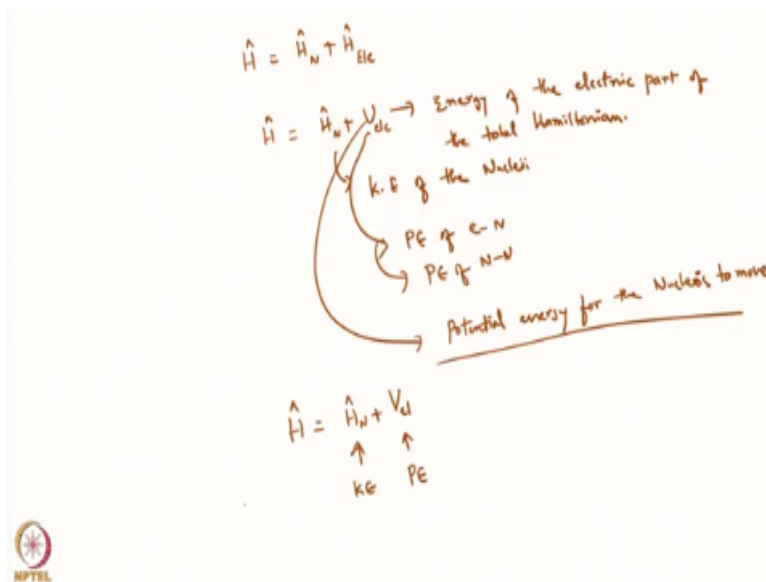 Ĥ = Ĥ_N + Ĥ_Ele
Ĥ = Ĥ_N + V_ele → Energy of the electric part of
the total Hamiltonian.
K.E of the Nucleii
PE of e-N
PE of N-N
Potential energy for the Nucleus to move
Ĥ = Ĥ_N + V_el
↑ ↑
KE PE
NPTEL